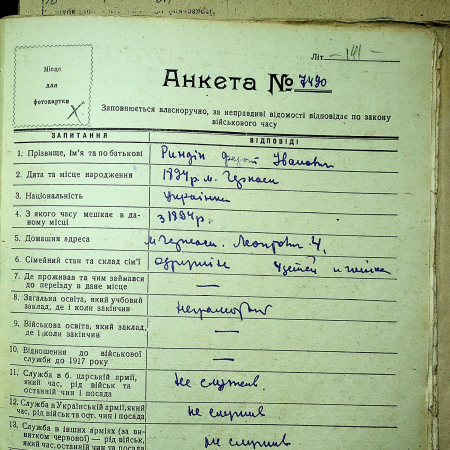 Літ. 141
Місце
для
фотокартки
Анкета № 7490
Заповнюється власноручно, за неправдиві відомості відповідає по закону
військового часу
ЗАПИТАННЯ ВІДПОВІДІ
1. Прізвище, ім'я та по батькові Риндін Іванович
2. Дата та місце народження 1894 р. м. Черкаси
3. Національність Українець
4. З якого часу мешкає в да-
ному місці з 1894 р.
5. Домашня адреса м. Черкаси.
6. Сімейний стан та склад сім'ї 4 дітей и жінка
7. Де проживав та чим займався
до переїзду в дане місце —
8. Загальна освіта, який учбовий
заклад, де і коли закінчив
9. Військова освіта, який заклад,
де і коли закінчив —
10. Відношення до військової
служби до 1917 року —
11. Служба в б. царській армії,
який час, рід військ та
останній чин і посада Не служив.
12. Служба в Українській армії, який
час, рід військ та ост. чин і посада не служив
13. Служба в інших арміях (за ви-
нятком червоної) — рід військ,
який час, останній чин та посада не служив